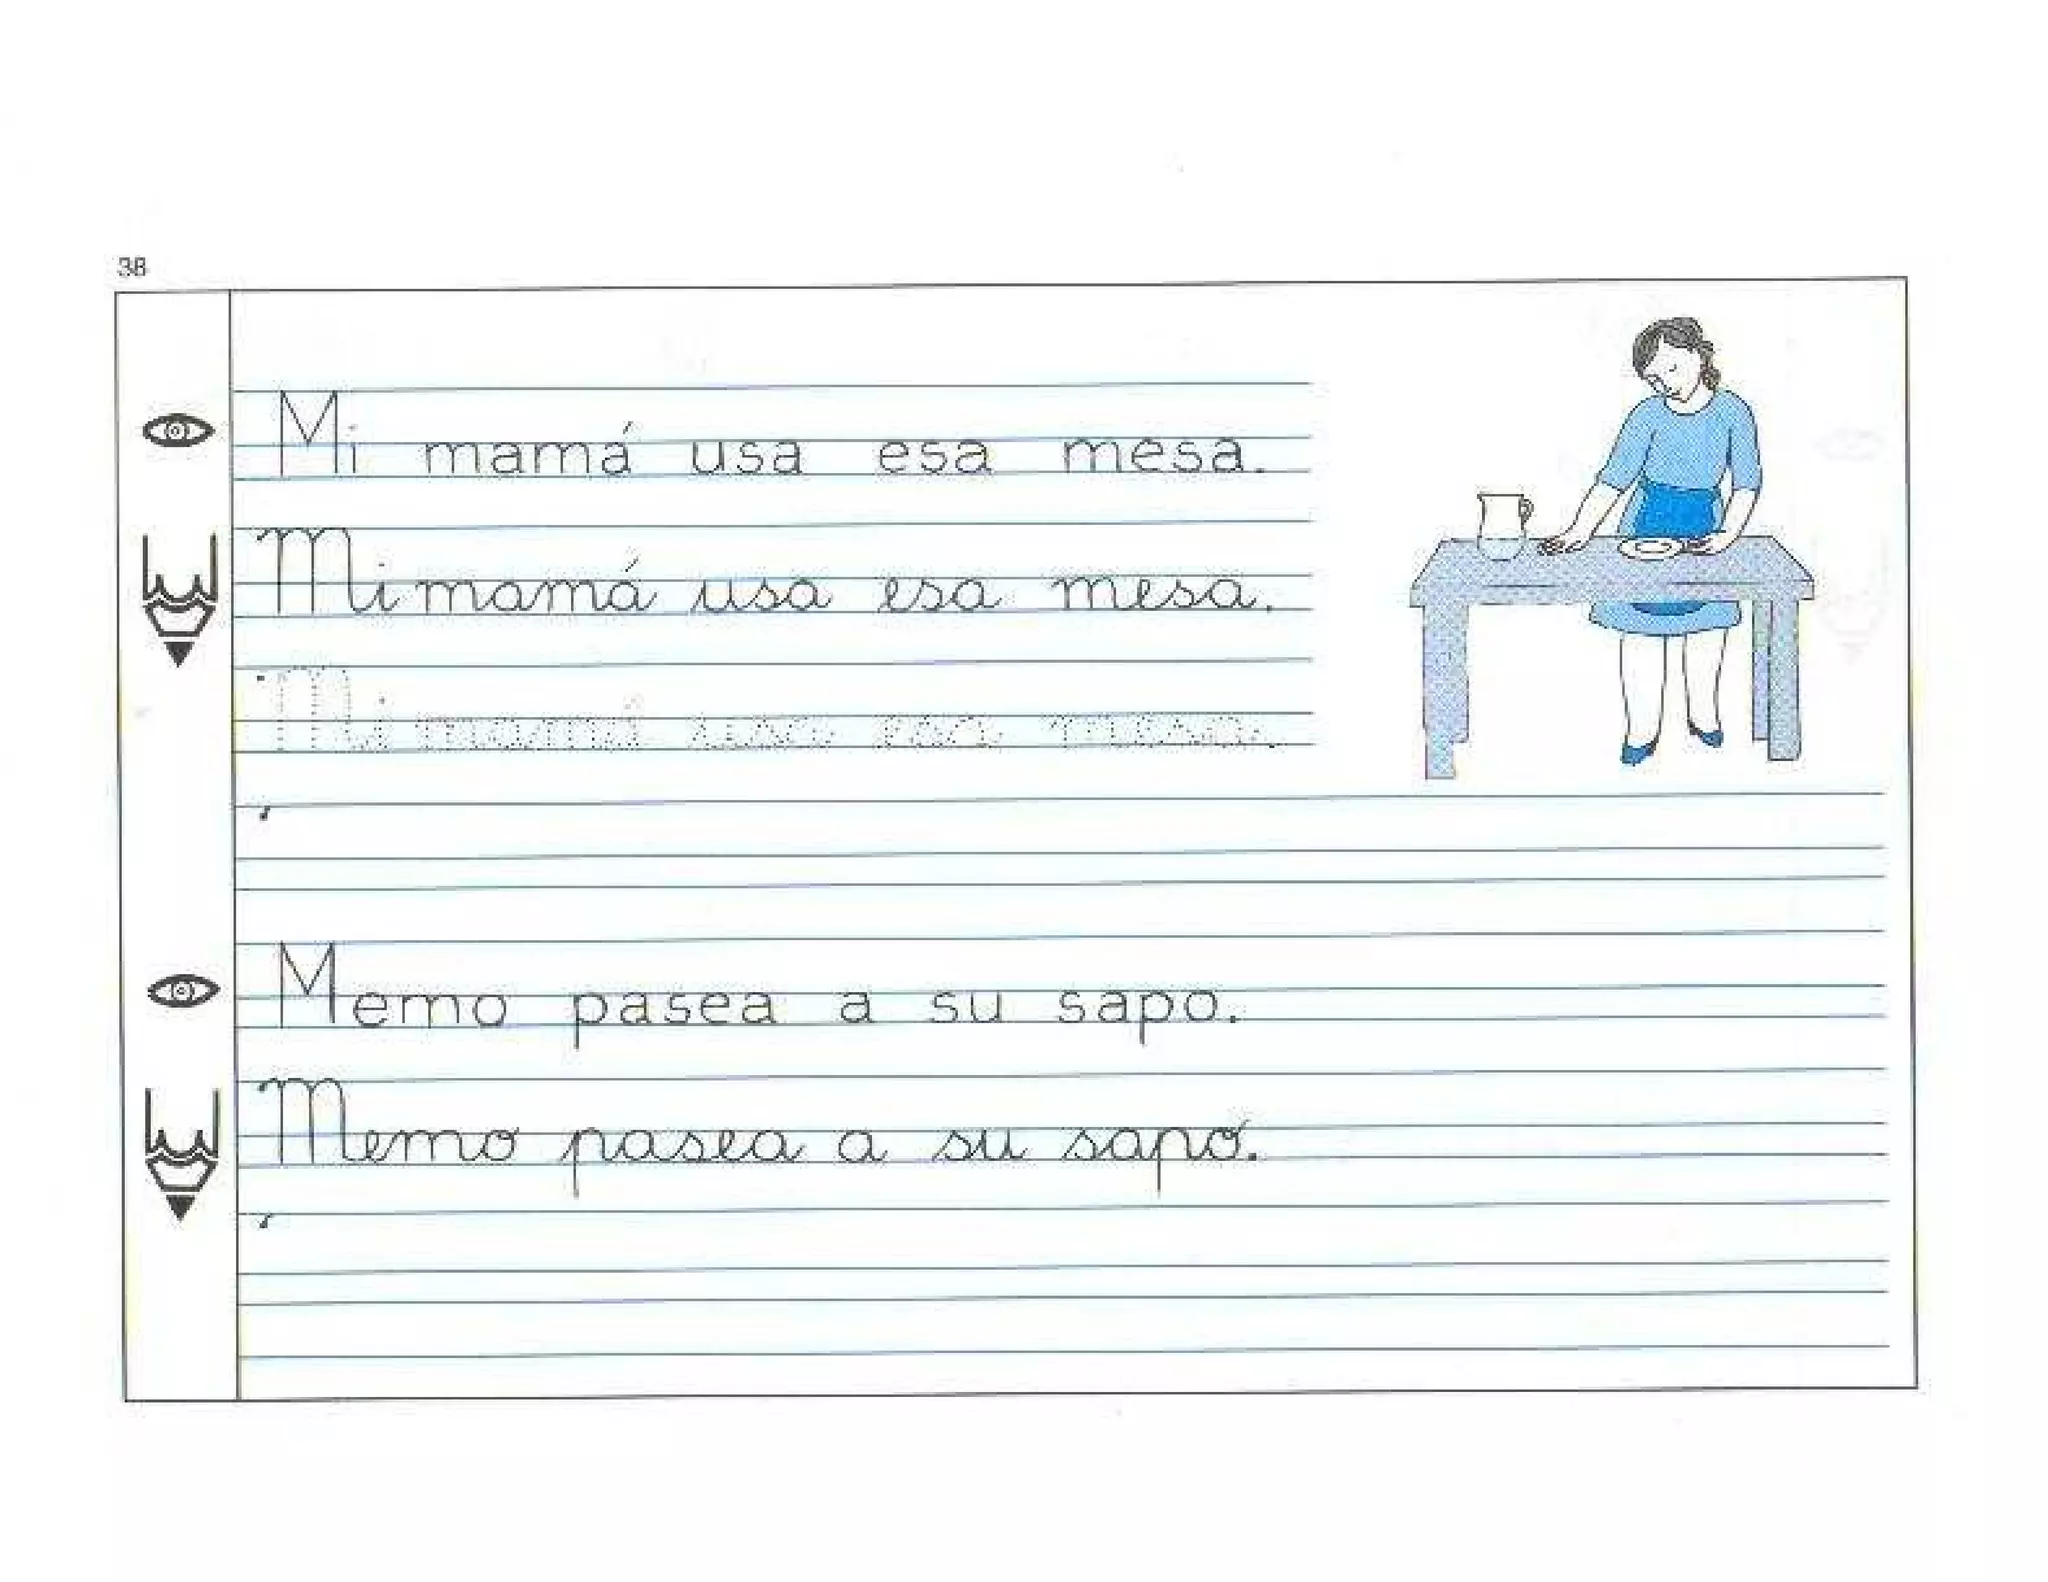 38
Mi mamá usa esa mesa.
Mi mamá usa esa mesa.
Mi mamá usa esa mesa.
Memo pasea a su sapo.
Memo pasea a su sapo.